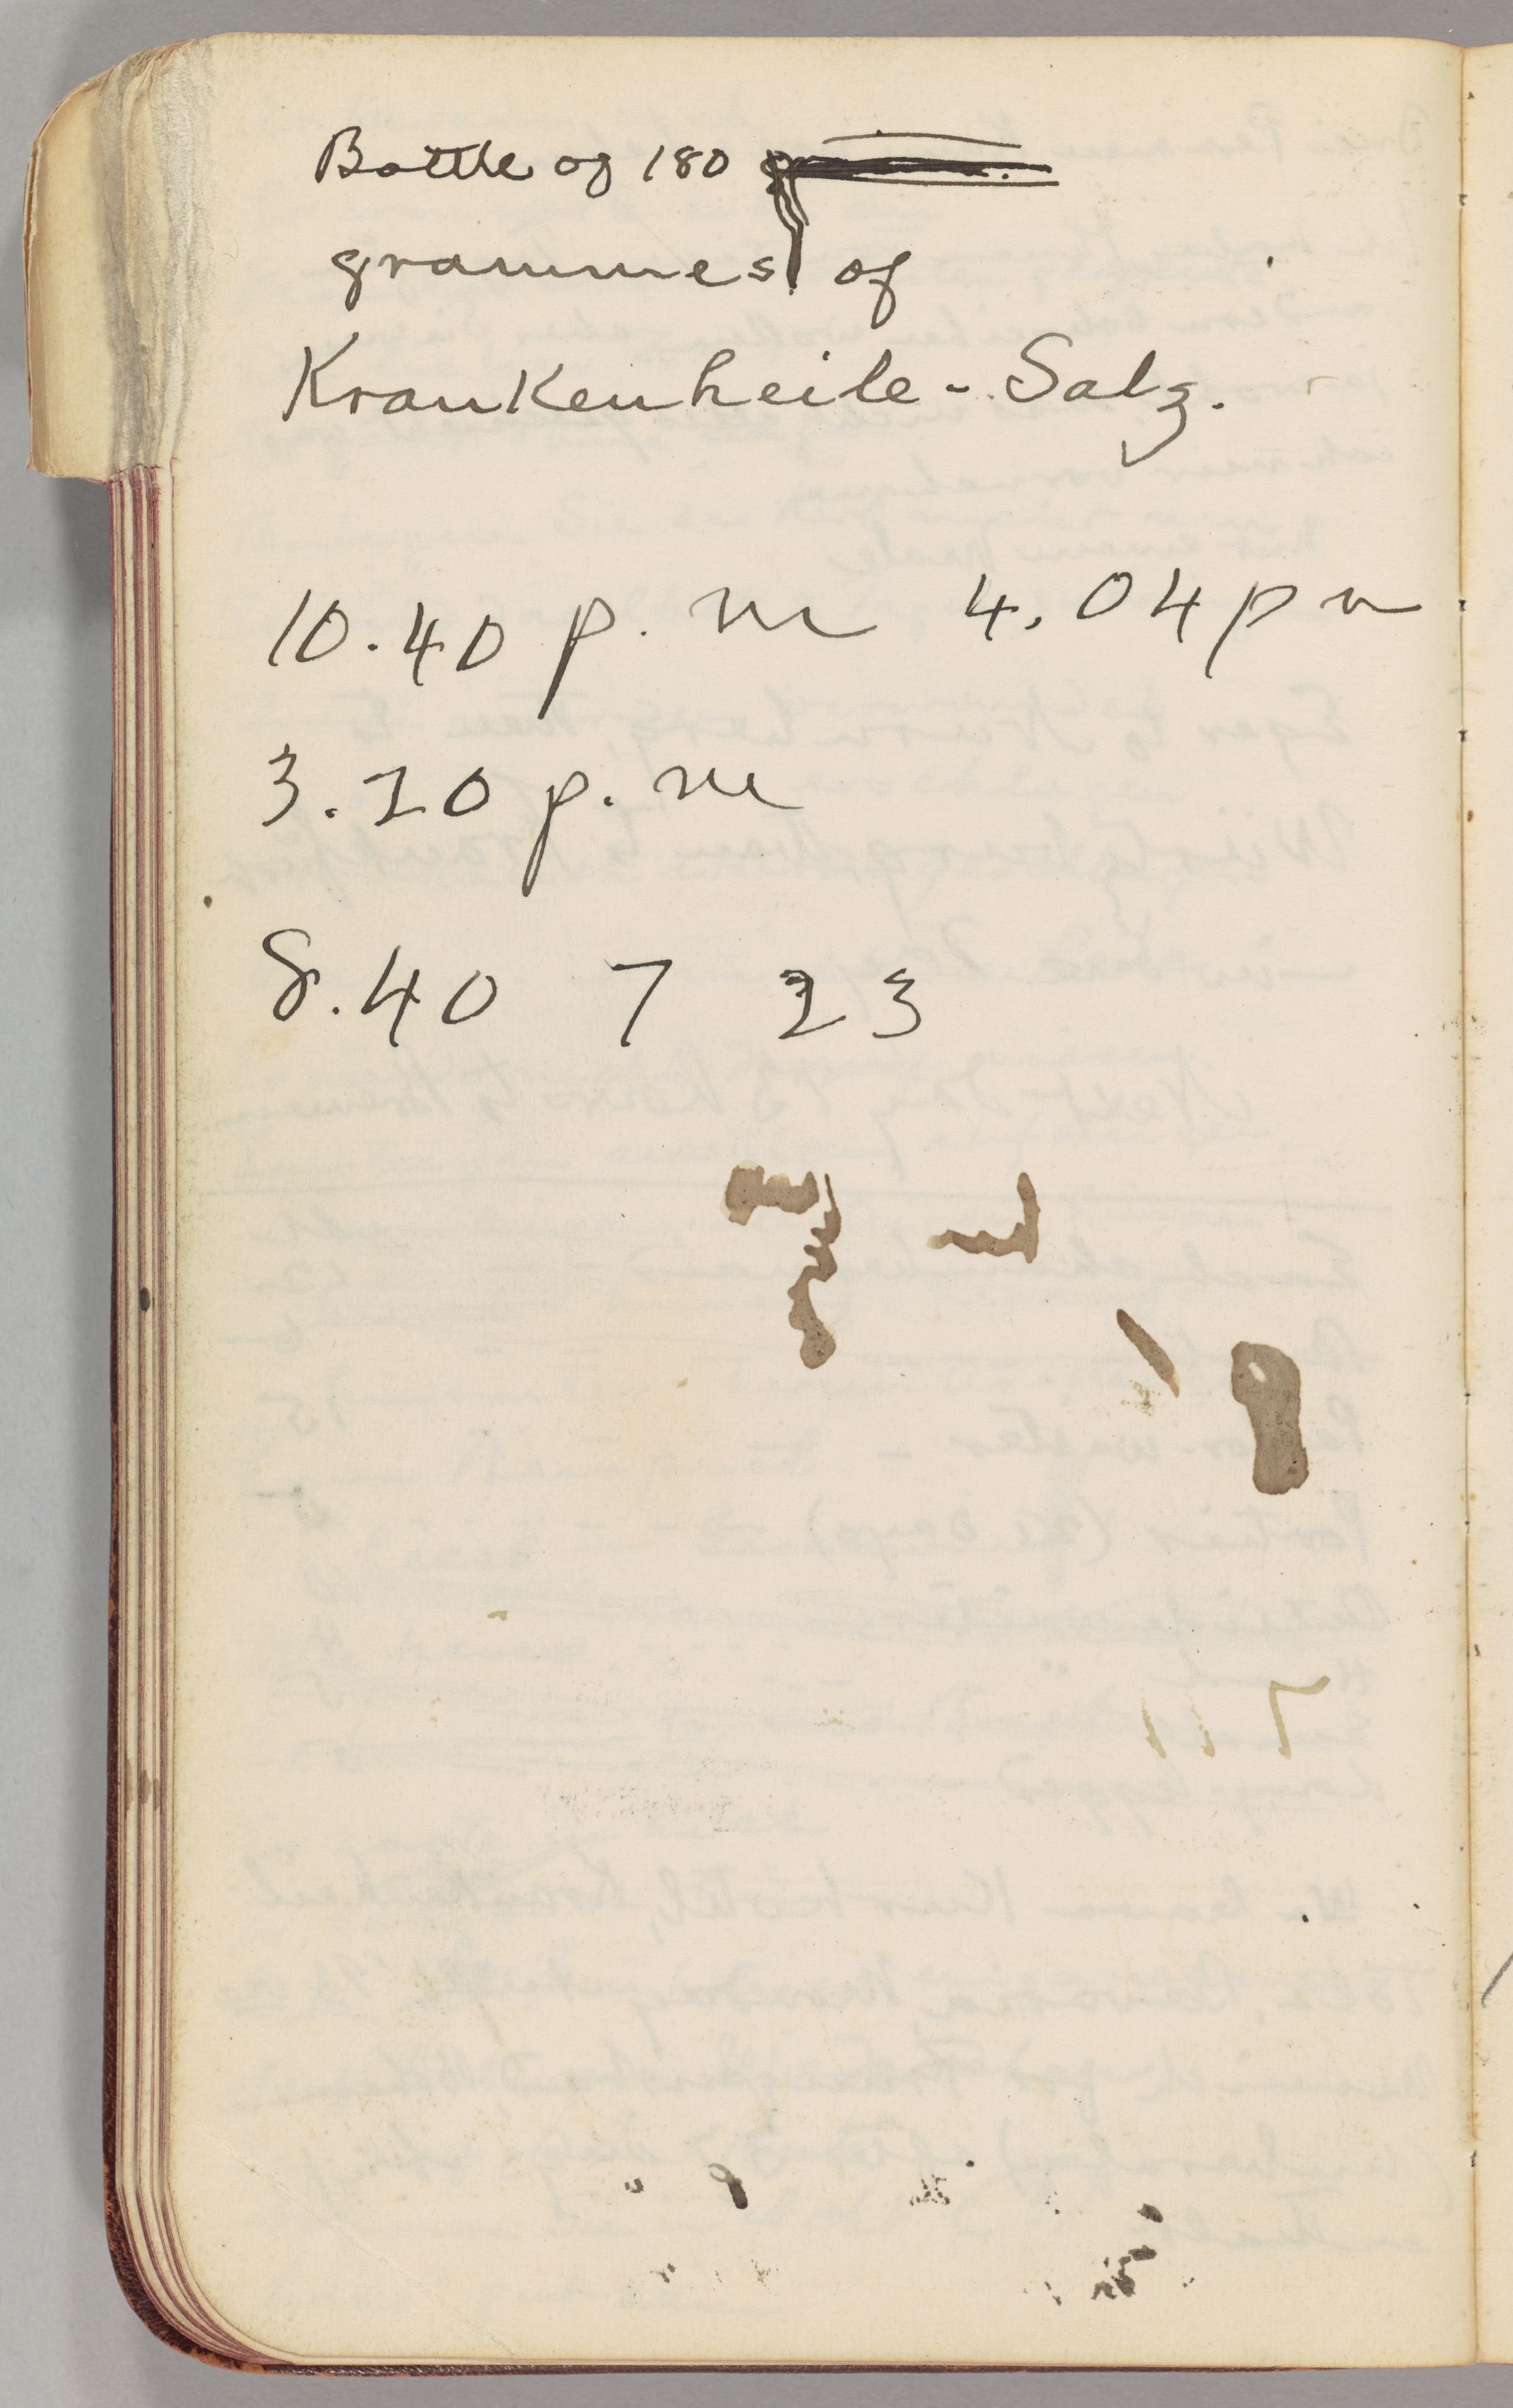 Bottle of 180
grammes of
Krankenheile-Salz.
10.40 p. m 4.04 p m
3.20 p. m
8.40 7 23